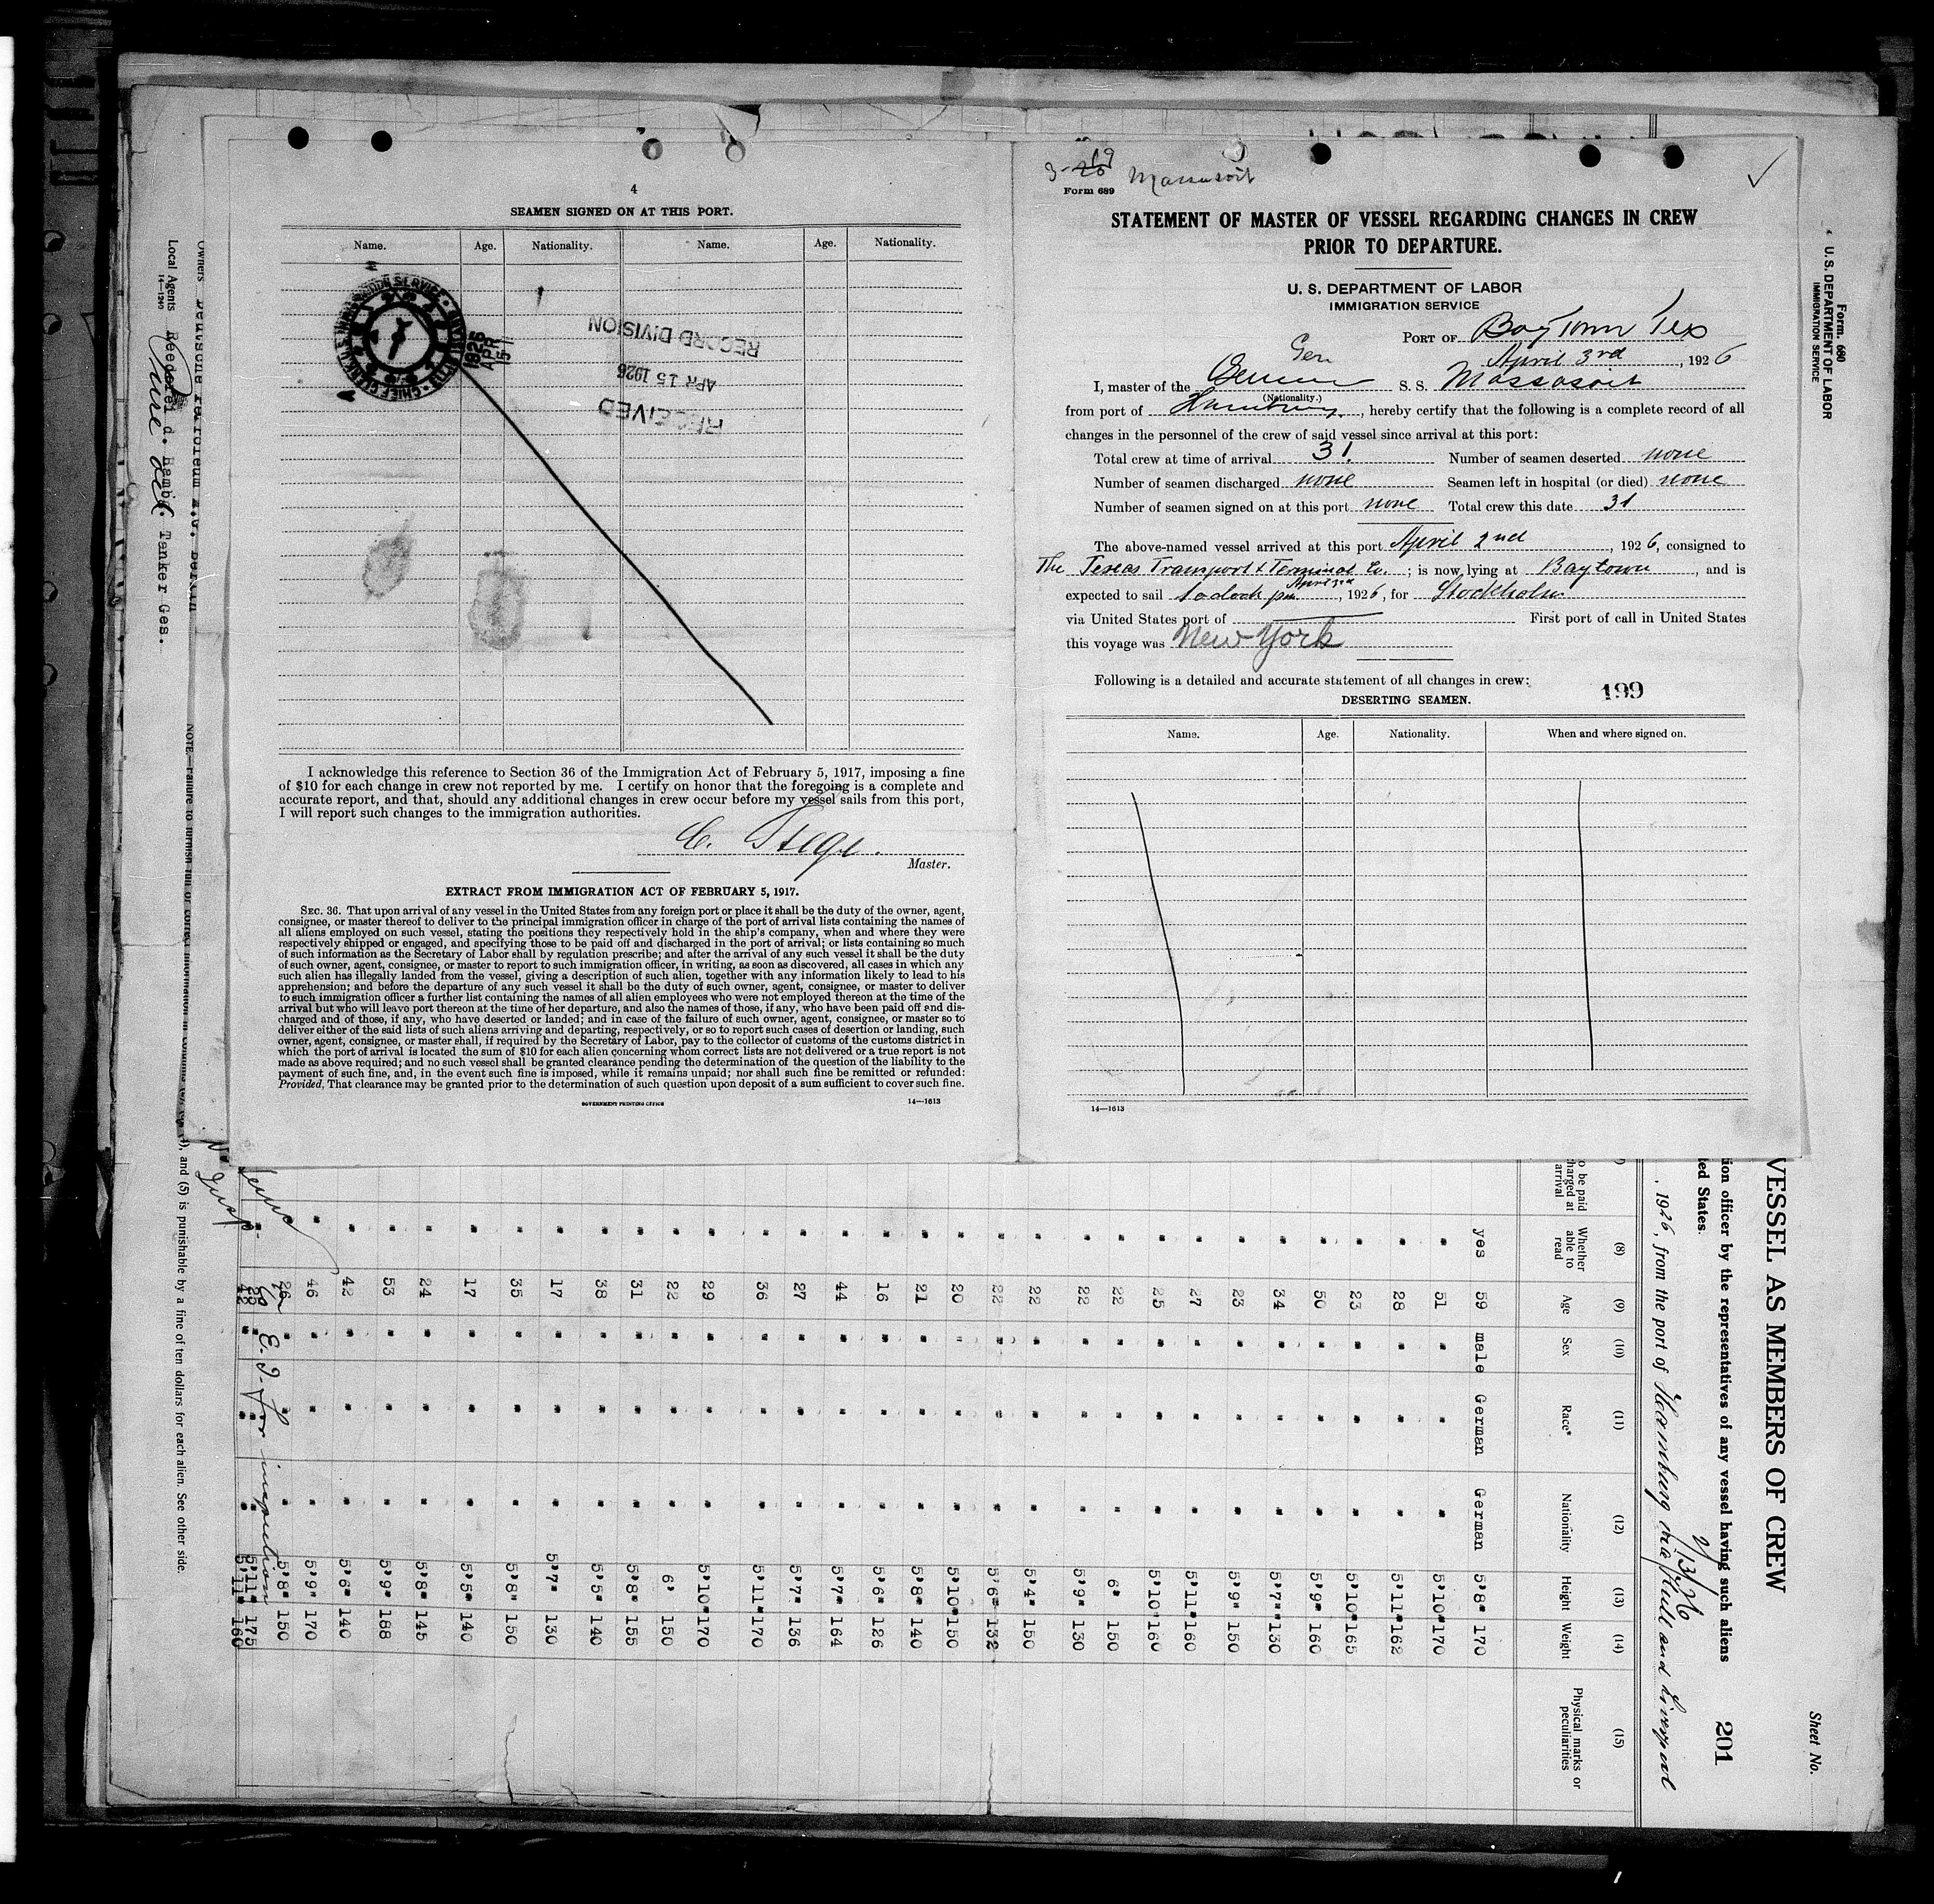 4
SEAMEN SIGNED ON AT THIS PORT.
Name. Age. Nationality. Name. Age. Nationality.
1926 APR 15
RECORD DIVISION
APR 15 1926
RECEIVED
I acknowledge this reference to Section 36 of the Immigration Act of February 5, 1917, imposing a fine
of $10 for each change in crew not reported by me. I certify on honor that the foregoing is a complete and
accurate report, and that, should any additional changes in crew occur before my vessel sails from this port,
I will report such changes to the immigration authorities.
C. Stege.
Master.
EXTRACT FROM IMMIGRATION ACT OF FEBRUARY 5, 1917.
SEC. 36. That upon arrival of any vessel in the United States from any foreign port or place it shall be the duty of the owner, agent,
consignee, or master thereof to deliver to the principal immigration officer in charge of the port of arrival lists containing the names of
all aliens employed on such vessel, stating the positions they respectively hold in the ship's company, when and where they were
respectively shipped or engaged, and specifying those to be paid off and discharged in the port of arrival; or lists containing so much
of such information as the Secretary of Labor shall by regulation prescribe; and after the arrival of any such vessel it shall be the duty
of such owner, agent, consignee, or master to report to such immigration officer, in writing, as soon as discovered, all cases in which any
such alien has illegally landed from the vessel, giving a description of such alien, together with any information likely to lead to his
apprehension; and before the departure of any such vessel it shall be the duty of such owner, agent, consignee, or master to deliver
to such immigration officer a further list containing the names of all alien employees who were not employed thereon at the time of the
arrival but who will leave port thereon at the time of her departure, and also the names of those, if any, who have been paid off and dis-
charged and of those, if any, who have deserted or landed; and in case of the failure of such owner, agent, consignee, or master so to
deliver either of the said lists of such aliens arriving and departing, respectively, or so to report such cases of desertion or landing, such
owner, agent, consignee, or master shall, if required by the Secretary of Labor, pay to the collector of customs of the customs district in
which the port of arrival is located the sum of $10 for each alien concerning whom correct lists are not delivered or a true report is not
made as above required; and no such vessel shall be granted clearance pending the determination of the question of the liability to the
payment of such fine, and, in the event such fine is imposed, while it remains unpaid; nor shall such fine be remitted or refunded:
Provided, That clearance may be granted prior to the determination of such question upon deposit of a sum sufficient to cover such fine.
GOVERNMENT PRINTING OFFICE 14—1613
Massasoit
Form 689
STATEMENT OF MASTER OF VESSEL REGARDING CHANGES IN CREW
PRIOR TO DEPARTURE.
U. S. DEPARTMENT OF LABOR
IMMIGRATION SERVICE
PORT OF Baytown Tex
April 3rd, 1926
I, master of the German S. S. Massasoit
(Nationality.)
from port of Hamburg, hereby certify that the following is a complete record of all
changes in the personnel of the crew of said vessel since arrival at this port:
Total crew at time of arrival 31. Number of seamen deserted none
Number of seamen discharged none Seamen left in hospital (or died) none
Number of seamen signed on at this port none Total crew this date 31
The above-named vessel arrived at this port April 2nd, 1926, consigned to
The Texas Transport & Terminal Co.; is now lying at Baytown, and is
expected to sail April 3rd, 1926, for Stockholm
via United States port of First port of call in United States
this voyage was New York
Following is a detailed and accurate statement of all changes in crew:
199
DESERTING SEAMEN.
Name. Age. Nationality. When and where signed on.
14—1613
Form 680
U. S. DEPARTMENT OF LABOR
IMMIGRATION SERVICE
Sheet No.
VESSEL AS MEMBERS OF CREW
ion officer by the representatives of any vessel having such aliens
ted States.
201
2/13/26
, 1926, from the port of Hamburg via Hull and Liverpool
(8) (9) (10) (11) (12) (13) (14) (15)
Whether able to read Age Sex Race* Nationality Height Weight Physical marks or peculiarities
yes 59 male German German 5'8" 170
" 51 " " " 5'10" 170
" 28 " " " 5'11" 162
" 23 " " " 5'10" 165
" 50 " " " 5'9" 160
" 34 " " " 5'7" 130
" 23 " " " 5'9" 150
" 27 " " " 5'11" 160
" 25 " " " 5'10" 160
" 22 " " " 6" 150
" 22 " " " 5'9" 130
" 22 " " " 5'4" 150
" 22 " " " 5'6" 132
" 20 " " " 5'10" 150
" 21 " " " 5'8" 140
" 16 " " " 5'6" 126
" 44 " " " 5'7" 164
" 27 " " " 5'7" 136
" 36 " " " 5'11" 170
" 29 " " " 5'10" 170
" 22 " " " 6' 150
" 31 " " " 5'8" 155
" 38 " " " 5'5" 140
" 17 " " " 5'7" 130
" 35 " " " 5'8" 150
" 17 " " " 5'5" 140
" 24 " " " 5'8" 145
" 53 " " " 5'9" 188
" 42 " " " 5'6" 140
" 46 " " " 5'9" 170
" 26 " " " 5'8" 150
5'11" 175
5'11" 160
for inspection
and (5) is punishable by a fine of ten dollars for each alien. See other side.
Owners Deutsche Petroleum A.G. Berlin
Local Agents
Tanker Ges.
14—1240